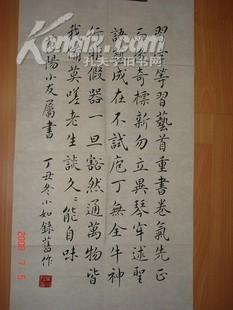 習字等習藝首重書卷氣先正
而後奇標新勿立異琴牢述聖
語藝成在不試庖丁無全牛神
行非假器一旦豁然通萬物皆
我備莫嗟老生談久久能自味
陽小友屬書 丁丑冬小如錄舊作
孔夫子旧书网
2008 7 5